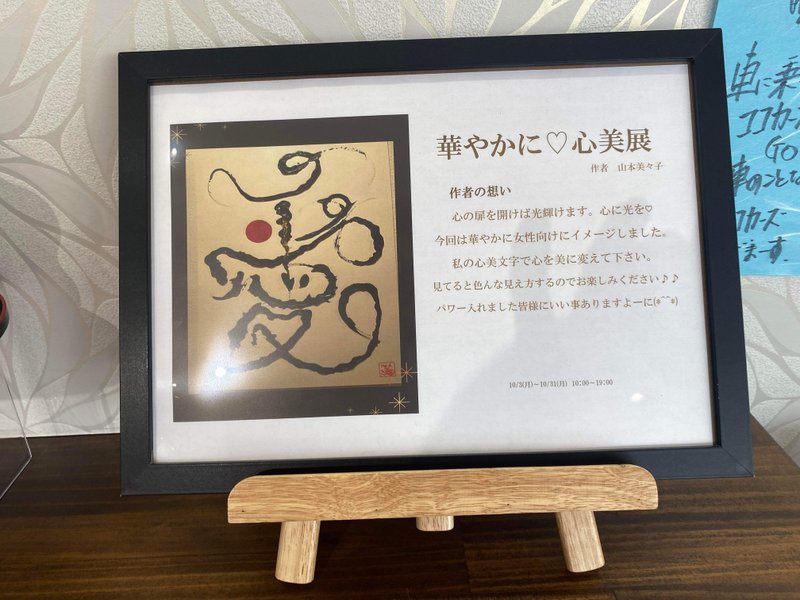 華やかに♡心美展
作者　山本美々子
作者の想い
心の扉を開けば光輝けます。心に光を♡
今回は華やかに女性向けにイメージしました。
私の心美文字で心を美に変えて下さい。
見てると色んな見え方するのでお楽しみください♪♪
パワー入れました皆様にいい事ありますよーに(*^^*)
10/3(月)～10/31(月) 10:00～19:00
車に乗
ココカーズ
GO
車のことな
ます。